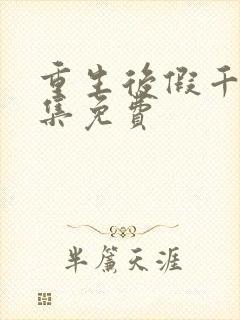 重生後假千
集免費
半簾天涯